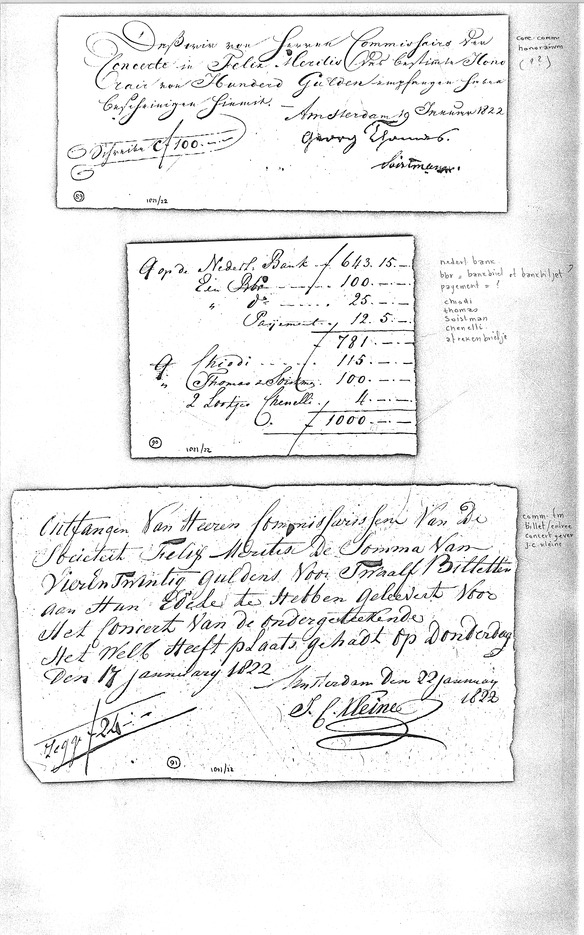 Daß wir von Herren Commissairs der
Concerte in Felix Meritis das bestimte Hono
rair von Hundert Gulden empfangen haben
bescheinigen hiemit.
Amsterdam 19 Januar 1822
Georg Thomas.
Schreibe f 100.—
89
1011/22
conc. comm
honorarium
(1?)
op de Nederl. Bank f 643.15.—
Een Bbr 100.—
" do 25.—
Payement 12.5.—
781.—
Chiodi 115.—
" Thomas &
100.—
2 Lootjes Chenelli 4.—
f 1000.—
90
1011/22
nederl. bank
bbr = bankbriel of bankbiljet?
payement = ?
chiodi
thomas
soistman
chenelli
afrekenbriefje
Ontfangen Van Heeren Commissarissen Van De
Societeit Felix Meritis De Somma Van
Vierentwintig guldens Voor Twaalf Billetten
aan Hun Edele te Hebben geleevert Voor
Het Concert Van de ondergeteekende
Het Welk Heeft plaats gehadt op Donderdag
Den 17 januarary 1822
Amsterdam Den 22 january
1822
Zegge f 24.—
J. C. Kleine
91
1011/22
comm fm
billet/entree
concertgever
j.c. kleine